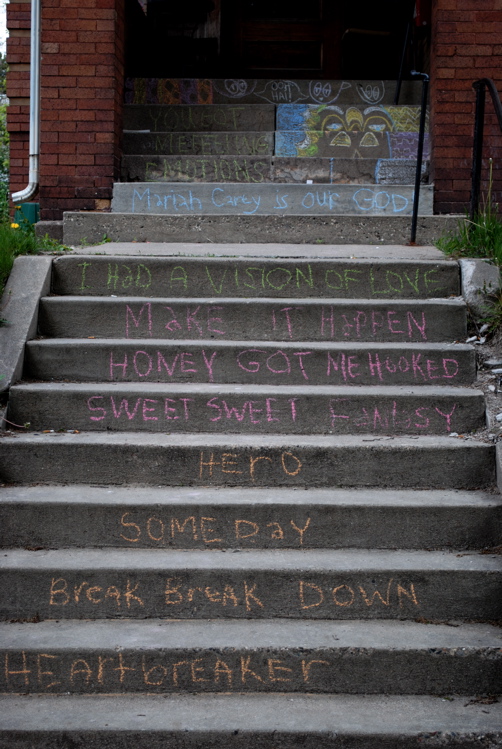 YOU GOT
ME FEELING
EMOTIONS
Mariah Carey is our GOD
I HaD A VISION OF LOVE
MaKE IT HaPPEN
HONEY GOT ME HOOKED
SWEET SWEET FanTaSY
HErO
SOMEDaY
Break Break DOWN
HEartbrEAKEr